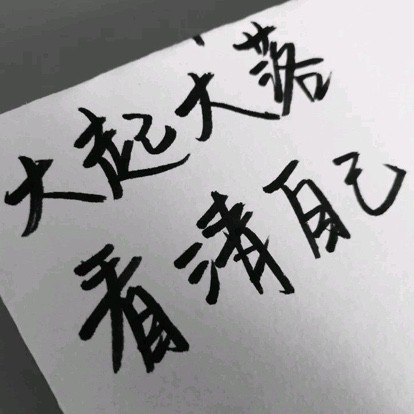 大起大落
看清自己